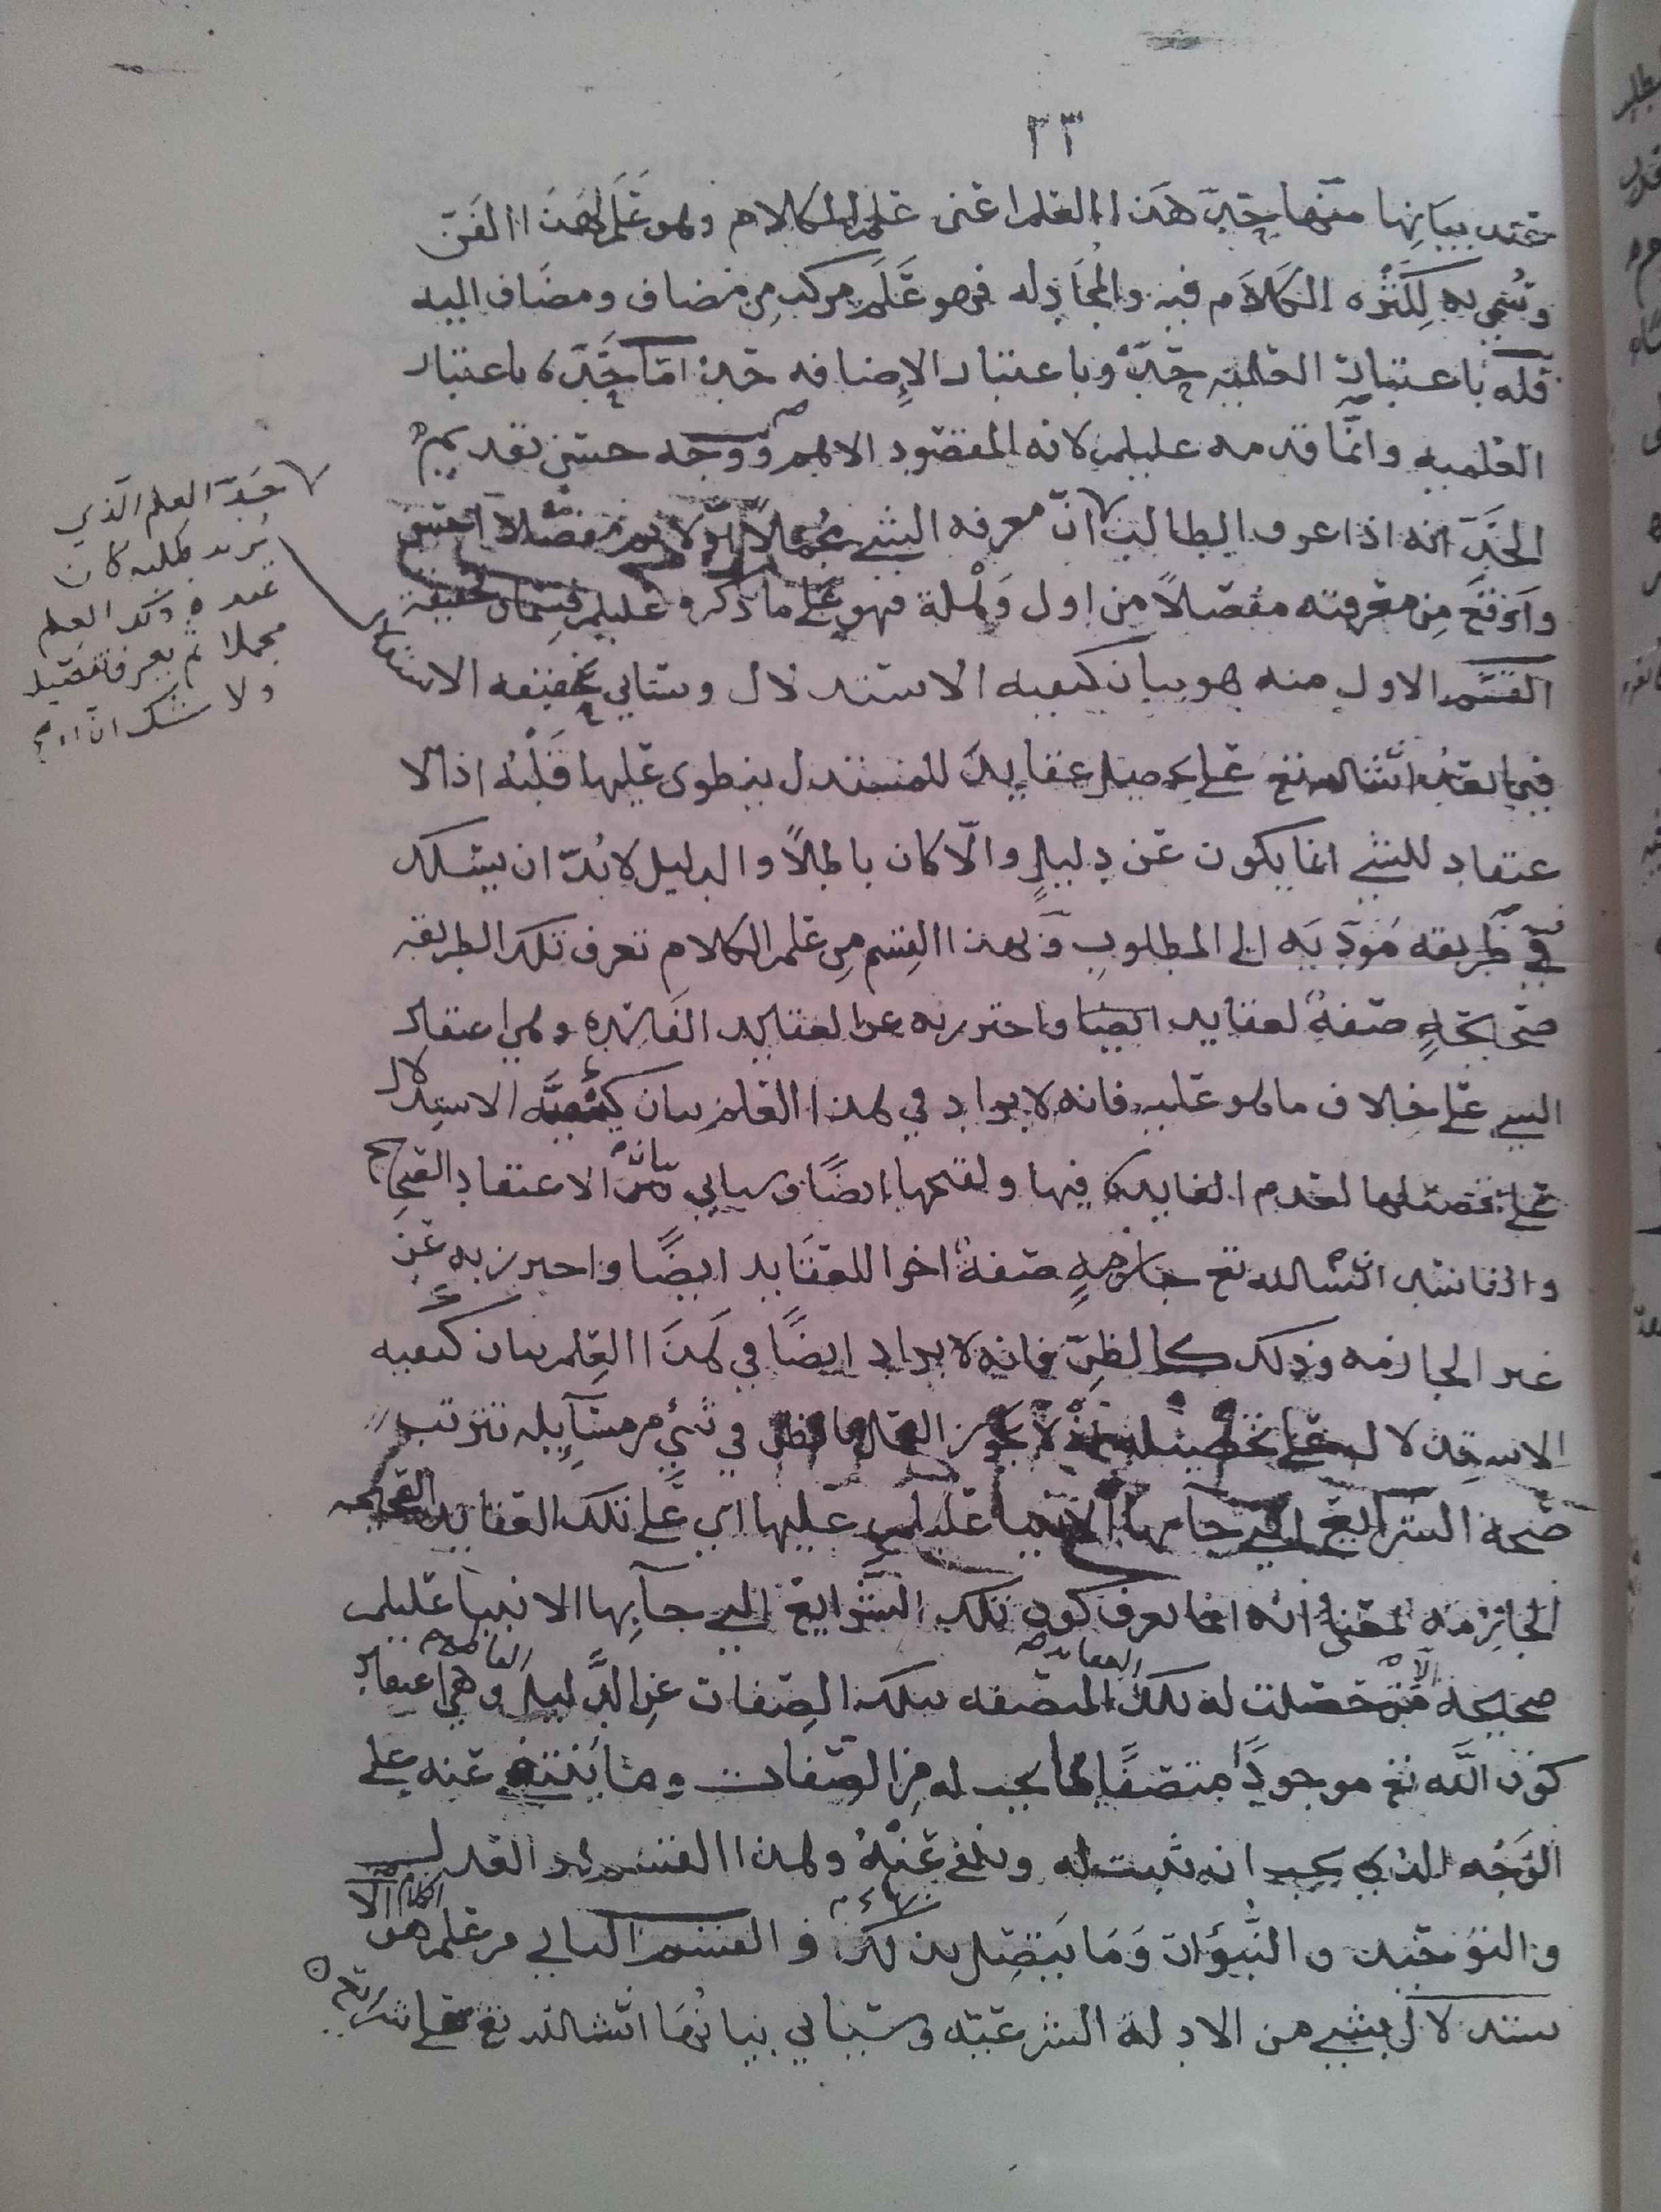 ٢٣
عند بيانها منها حدّ هذا العلم اعني علم الكلام وهو علم لهذا الفن
وسُمي به لكثره الكلام فيه والمجادله فهو عَلَم مركب مِن مضاف ومضاف اليه
فله باعتبار العلميه حدّ وباعتبار الإضافه حد امّا حدّه باعتبار
العلميه وانّما قدمه عليلم لانه المقصود الاهم ووجه حسن تقديم
الحدّ انه اذا عرف الطالب انّ معرفه الشي مُجملاً اوّلا ثم مفصّلاً
واوقع مِن معرفته مفصّلاً من اول وَهْلة فهو على ما ذكره عليلم قسمان حقيقة
القسم الاول منه هو بيان كيفيه الاستدلال وستاتي حقيقه الاستدلال
فيما بعدُ انشالله تع على تحصيل عقايد للمستدل ينطوي عليها قلبُه اذ الا
عتقاد للشي انما يكون عن دليلٍ والّا كان باطلاً والدليل لا بُدّ ان يسلك
في طريقه مُودّيَه الى المطلوب وبهذا القِسم مِن علم الكلام تعرف تلك الطريقه
صحيحةٍ صفةٌ لعقايد ايضا واحترز به عن العقايد الفاسده وهي اعتقاد
الشي على خلاف ما هو عليه فانه لا يراد في هذا العلم بيان كيفيّه الاستدلال
على تحصيلها لعدم الفايدة فيها ولقبحها ايضًا وسياتي بيان الاعتقاد الصحيح
والفاسد انشالله تع جازمةٍ صفةٌ اخرا للعقايد ايضًا واحترز به عن
غير الجازمه وذلك كالظنّ فانه لا يراد ايضًا في هذا العِلم بيان كيفيه
الاستدلال على تحصيله اذ لا يجوز العمل بالظن في شيءٍ من مسآيله تترتب
صحة الشرايع التي جآ بها الانبيا عليلم عليها اي على تلك العقايد الصحيحه
الجازمه بمعنى انه انما يعرف كون تلك الشرايع التي جآ بها الانبيا عليلم
صحيحة الا من حصلت له تلك العقايد المتصفه بتلك الصِفات عن الدَّليل وهي اعتقاد
كون الله تع موجودًا متصفًا بما يجب له مِن الصفات وما ينتفي عنه على
الوَجْه الذي يجب انه ثبت له ونفي عنْهُ وهذا القسم هو العدل
والتوحيد والنبوّات وَمَا يتصل بذلك و القسم الثاني من علم الكلام هو الا
ستدلال بشي من الادلة الشرعيّه وسياتي بيانُها انشالله تع على شرايع
حَدّ العلم الّذي
يُريد طلبه كان
عنده ذلك العلم
مجملا ثم يعرف تفصيله
ولا شك انّ